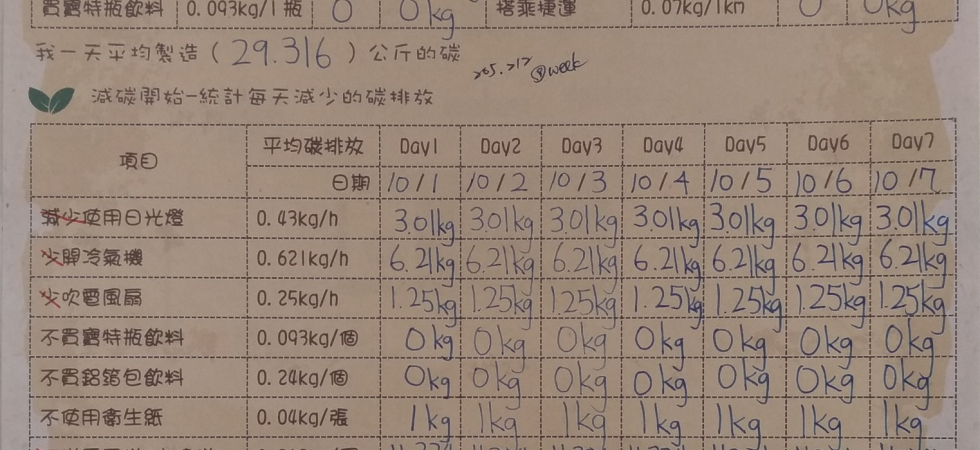 買寶特瓶飲料 0.093kg/1瓶 0 0kg 搭乘捷運 0.07kg/1km 0 0kg
我一天平均製造(29.316)公斤的碳
week
減碳開始-統計每天減少的碳排放
項目 平均碳排放 Day1 Day2 Day3 Day4 Day5 Day6 Day7
日期 10/1 10/2 10/3 10/4 10/5 10/6 10/7
減少使用日光燈 0.43kg/h 3.01kg 3.01kg 3.01kg 3.01kg 3.01kg 3.01kg 3.01kg
少開冷氣機 0.621kg/h 6.21kg 6.21kg 6.21kg 6.21kg 6.21kg 6.21kg 6.21kg
少吹電風扇 0.25kg/h 1.25kg 1.25kg 1.25kg 1.25kg 1.25kg 1.25kg 1.25kg
不買寶特瓶飲料 0.093kg/個 0kg 0kg 0kg 0kg 0kg 0kg 0kg
不買鋁箔包飲料 0.24kg/個 0kg 0kg 0kg 0kg 0kg 0kg 0kg
不使用衛生紙 0.04kg/張 1kg 1kg 1kg 1kg 1kg 1kg 1kg